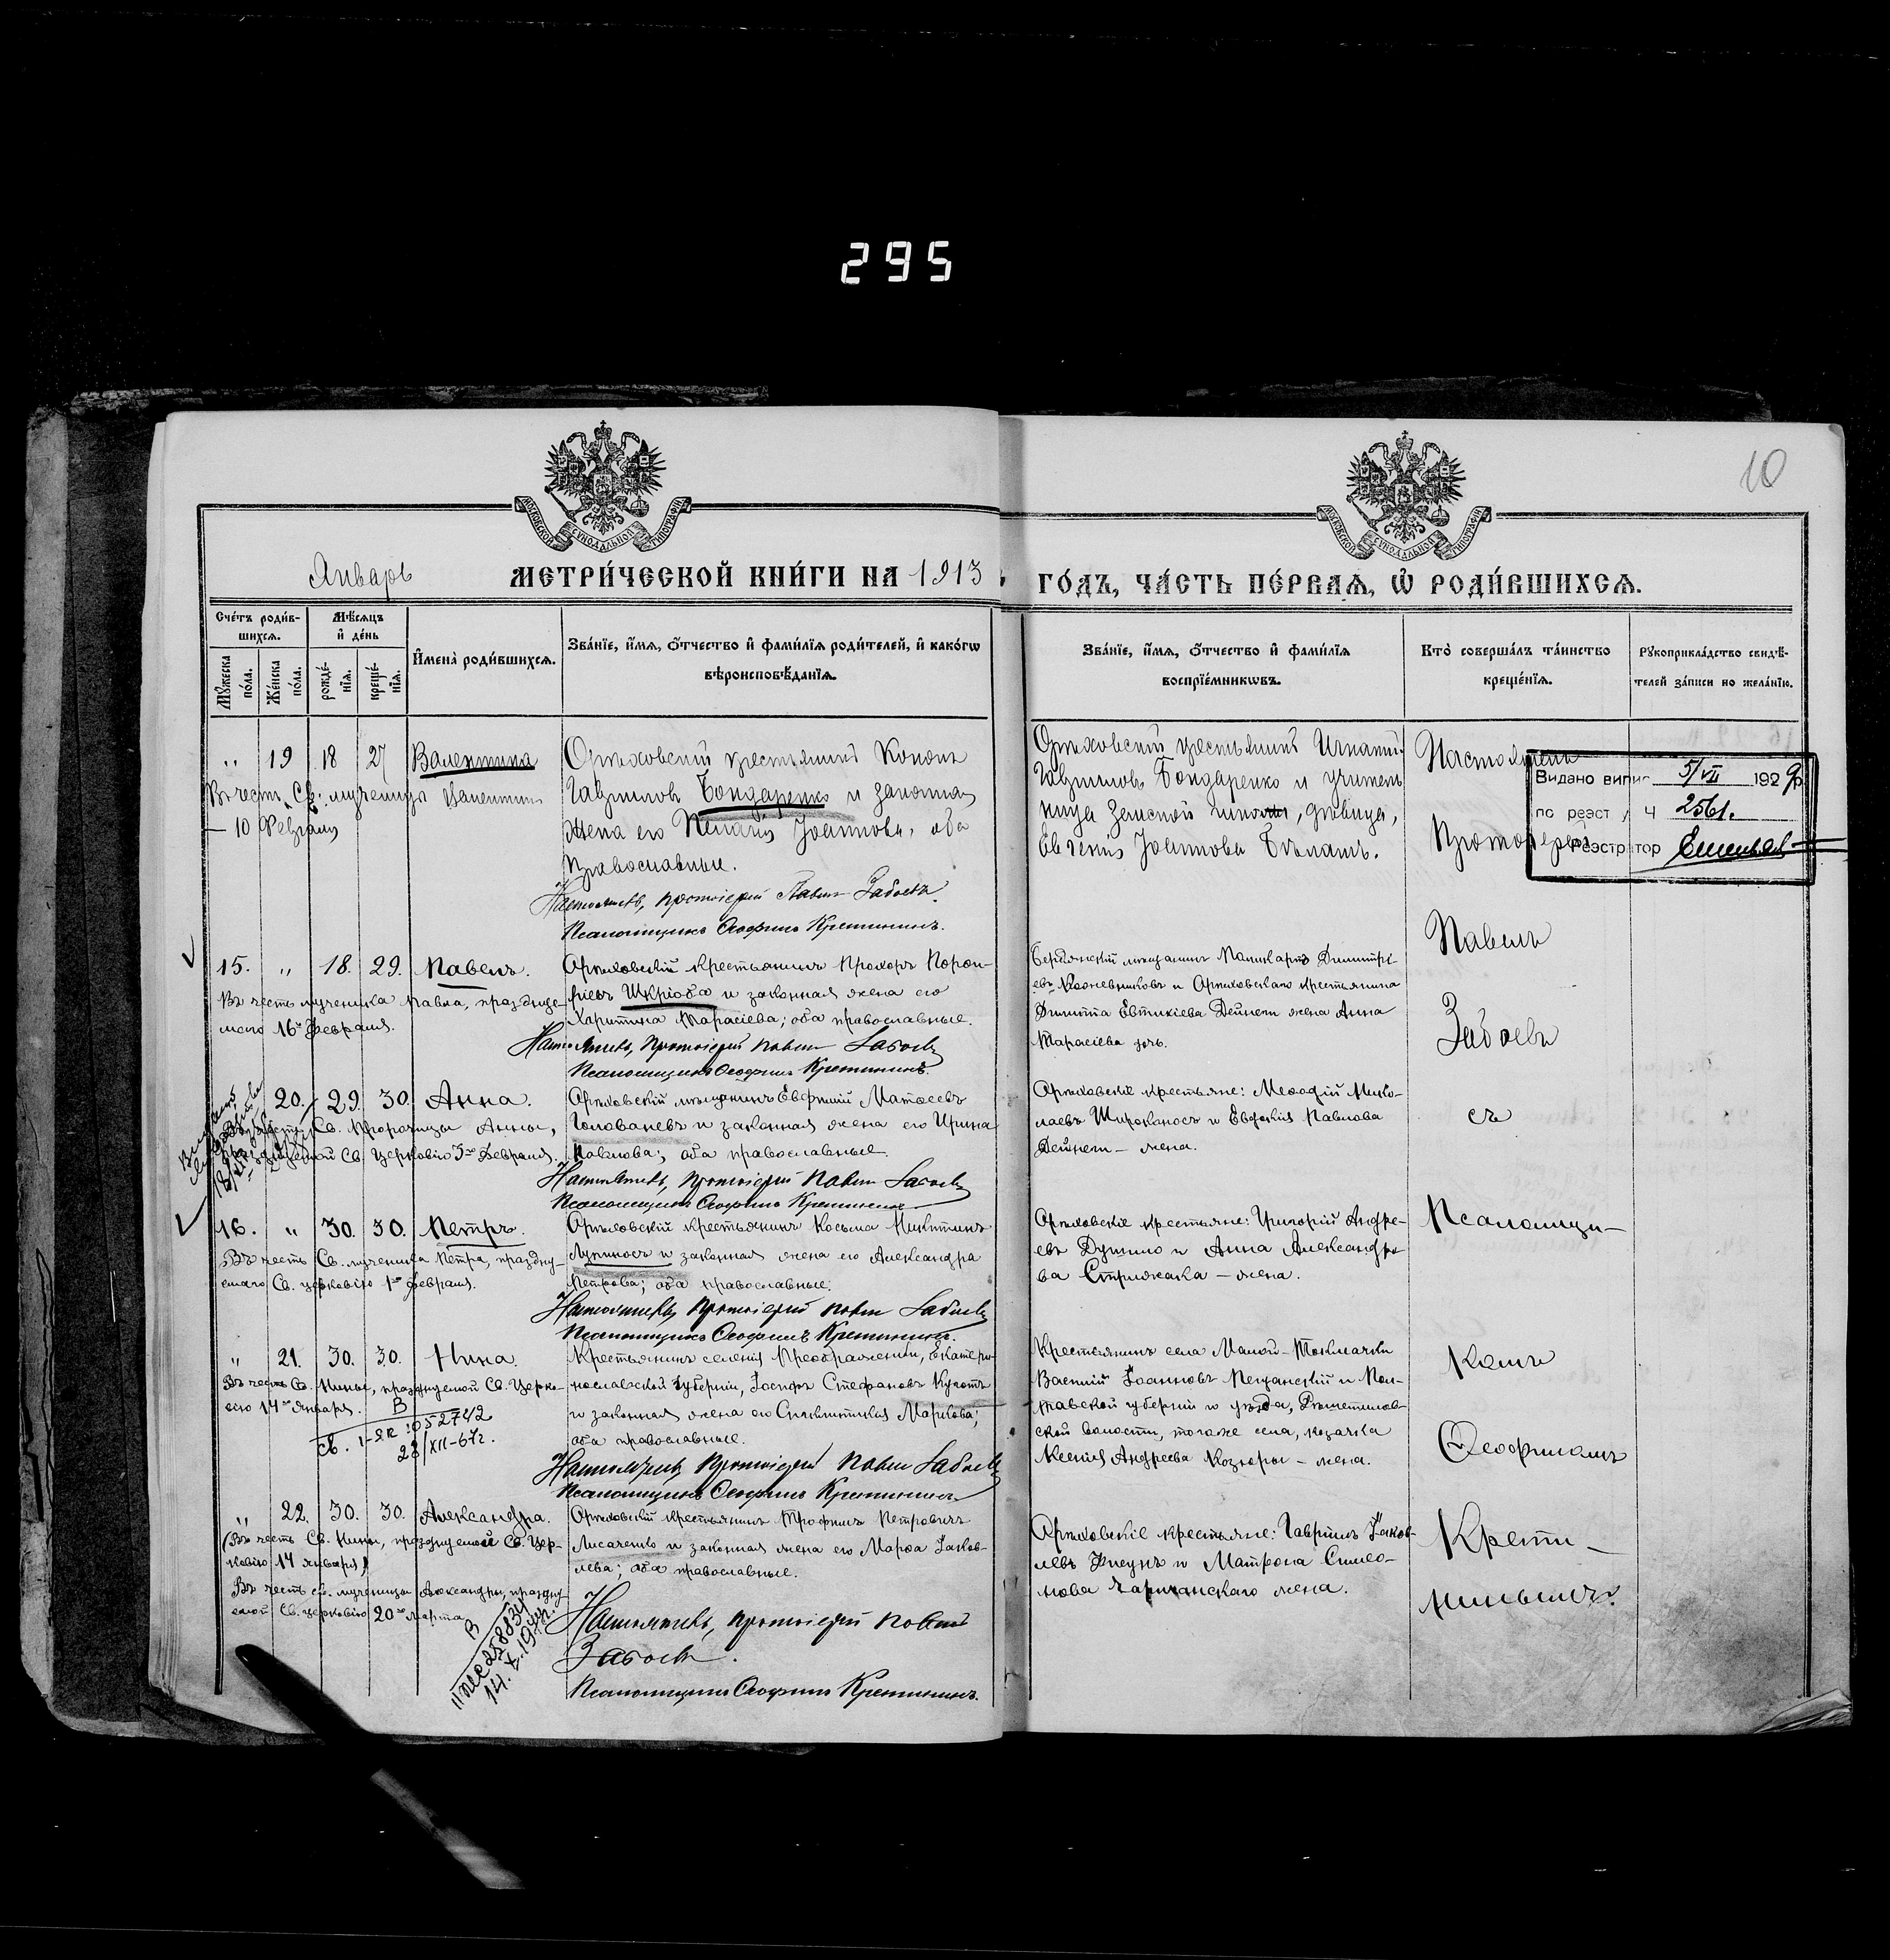 295
10
МОСКОВСКОЙ СѴНОДАЛЬНОЙ ТИПОГРАФІИ
МОСКОВСКОЙ СѴНОДАЛЬНОЙ ТИПОГРАФІИ
Январь
МЕТРИ́ЧЕСКОЙ КНИ́ГИ НА 1913
ГО́ДЪ, ЧА́СТЬ ПЕ́РВАѦ, Ѡ҆ РОДИ́ВШИХСѦ.
Сче́тъ роди́в-
шихсѧ.
Мѣ́сѧцъ
и҆ де́нь
Мꙋ́жеска по́ла.
Же́нска по́ла.
рожде́-
нїѧ.
креще́-
нїѧ.
И҆мена̀ роди́вшихсѧ.
Зва́нїе, и҆́мѧ, ѻ҆́тчество и҆ фами́лїѧ роди́телей, и҆ како́гѡ
вѣроисповѣ́данїѧ.
Зва́нїе, и҆́мѧ, ѻ҆́тчество и҆ фами́лїѧ
воспрїе́мникѡвъ.
Кто̀ соверша́лъ та́инство
креще́нїѧ.
Рꙋкоприкла́дство свидѣ́-
телей за́писи по жела́нїю.
" 19 18 27 Валентина
Въ честь Св. мученицы Валентины
— 10 Февраля
Орѣховскій крестьянинъ Кононъ
Гавриловъ Бондаренко и законная
жена его Пелагія Іоаннова, оба
православные.
Настоятель, протоіерей Павелъ Забоевъ.
Псаломщикъ Ѳеофилъ Кретининъ.
Орѣховскій крестьянинъ Игнатій
Гавриловъ Бондаренко и учитель
ница Земской школы, дѣвица,
Евгенія Іоаннова Бѣлашъ.
Настоятель
Протоіерей
Видано випис 5/VII 1929р.
по реэст ч 2561.
Реэстратор
15. " 18. 29. Павелъ.
Въ честь мученика Павла, праздну-
емаго 16го Февраля.
Орѣховскій крестьянинъ Прохоръ Порфи-
ріевъ Шкріоба и законная жена его
Харитина Тарасіева; оба православные.
Настоятель, Протоіерей Павелъ Забоевъ
Псаломщикъ Ѳеофилъ Кретининъ.
Бердянскій мѣщанинъ Поликарпъ Димитрі-
евъ Кожевниковъ и Орѣховскаго крестьянина
Евтихіева Дейнеги жена Анна
Тарасіева дочь.
Павелъ
Забоевъ
20. 29. 30. Анна.
Св. Пророчицы Анны,
Св. Церковію 3го Февраля.
Орѣховскій мѣщанинъ Евфимій Матѳеевъ
Голованевъ и законная жена его Ирина
Павлова; оба православные.
Настоятель, протоіерей Павелъ Забоевъ
Псаломщикъ Ѳеофилъ Кретининъ
Орѣховскіе крестьяне: Меѳодій Нико-
лаевъ Широконосъ и Евдокія Павлова
Дейнеги — жена.
съ
16. " 30. 30. Петръ.
Въ честь Св. мученика Петра, праздну-
емаго Св. церковію 1го Февраля.
Орѣховскій крестьянинъ Косьма Никитинъ
Лупиносъ и законная жена его Александра
Петрова; оба православные.
Настоятель, Протоіерей Павелъ Забоевъ
Псаломщикъ Ѳеофилъ Кретининъ.
Орѣховскіе крестьяне: Григорій Андре-
евъ и Анна Александро-
ва Стрижака — жена.
Псаломщи—
" 21. 30. 30. Нина.
Въ честь Св. Нины, празднуемой Св. Церко-
вію 14го Января.
В
св. 1-ЯК: 052742
28/XII-67г.
Крестьянинъ селенія Преображенки, Екатери-
нославской губерніи, Іосифъ Стефановъ
и законная жена его Синклитикія Маркова;
оба православные.
Настоятель, Протоіерей Павелъ Забоевъ
Псаломщикъ Ѳеофилъ Кретининъ.
Крестьянинъ села Малой-Токмачки
Василій Іоанновъ Песчанскій и Пол-
тавской губерніи и уѣзда, Рѣшетилов-
ской волости, того же села, козачка
Ксенія Андреева Козюры — жена.
комъ
Ѳеофиломъ
" 22. 30. 30. Александра.
(Въ честь Св. Нины, празднуемой Св. Цер-
ковію 14 Января)
Въ честь св. мученицы Александры, праздну-
емой Св. церковію 20го Марта
В
14. X. 19
Орѣховскій крестьянинъ Трофимъ Петровичъ
Лисаченко и законная жена его Марѳа Іаков-
лева; оба православные.
Настоятель, протоіерей Павелъ
Забоевъ.
Псаломщикъ Ѳеофилъ Кретининъ.
Орѣховскіе крестьяне: Гавріилъ Іаков-
левъ Фисунъ и Матрона Симео-
нова Чаричанскаго жена.
Крети—
нинымъ.